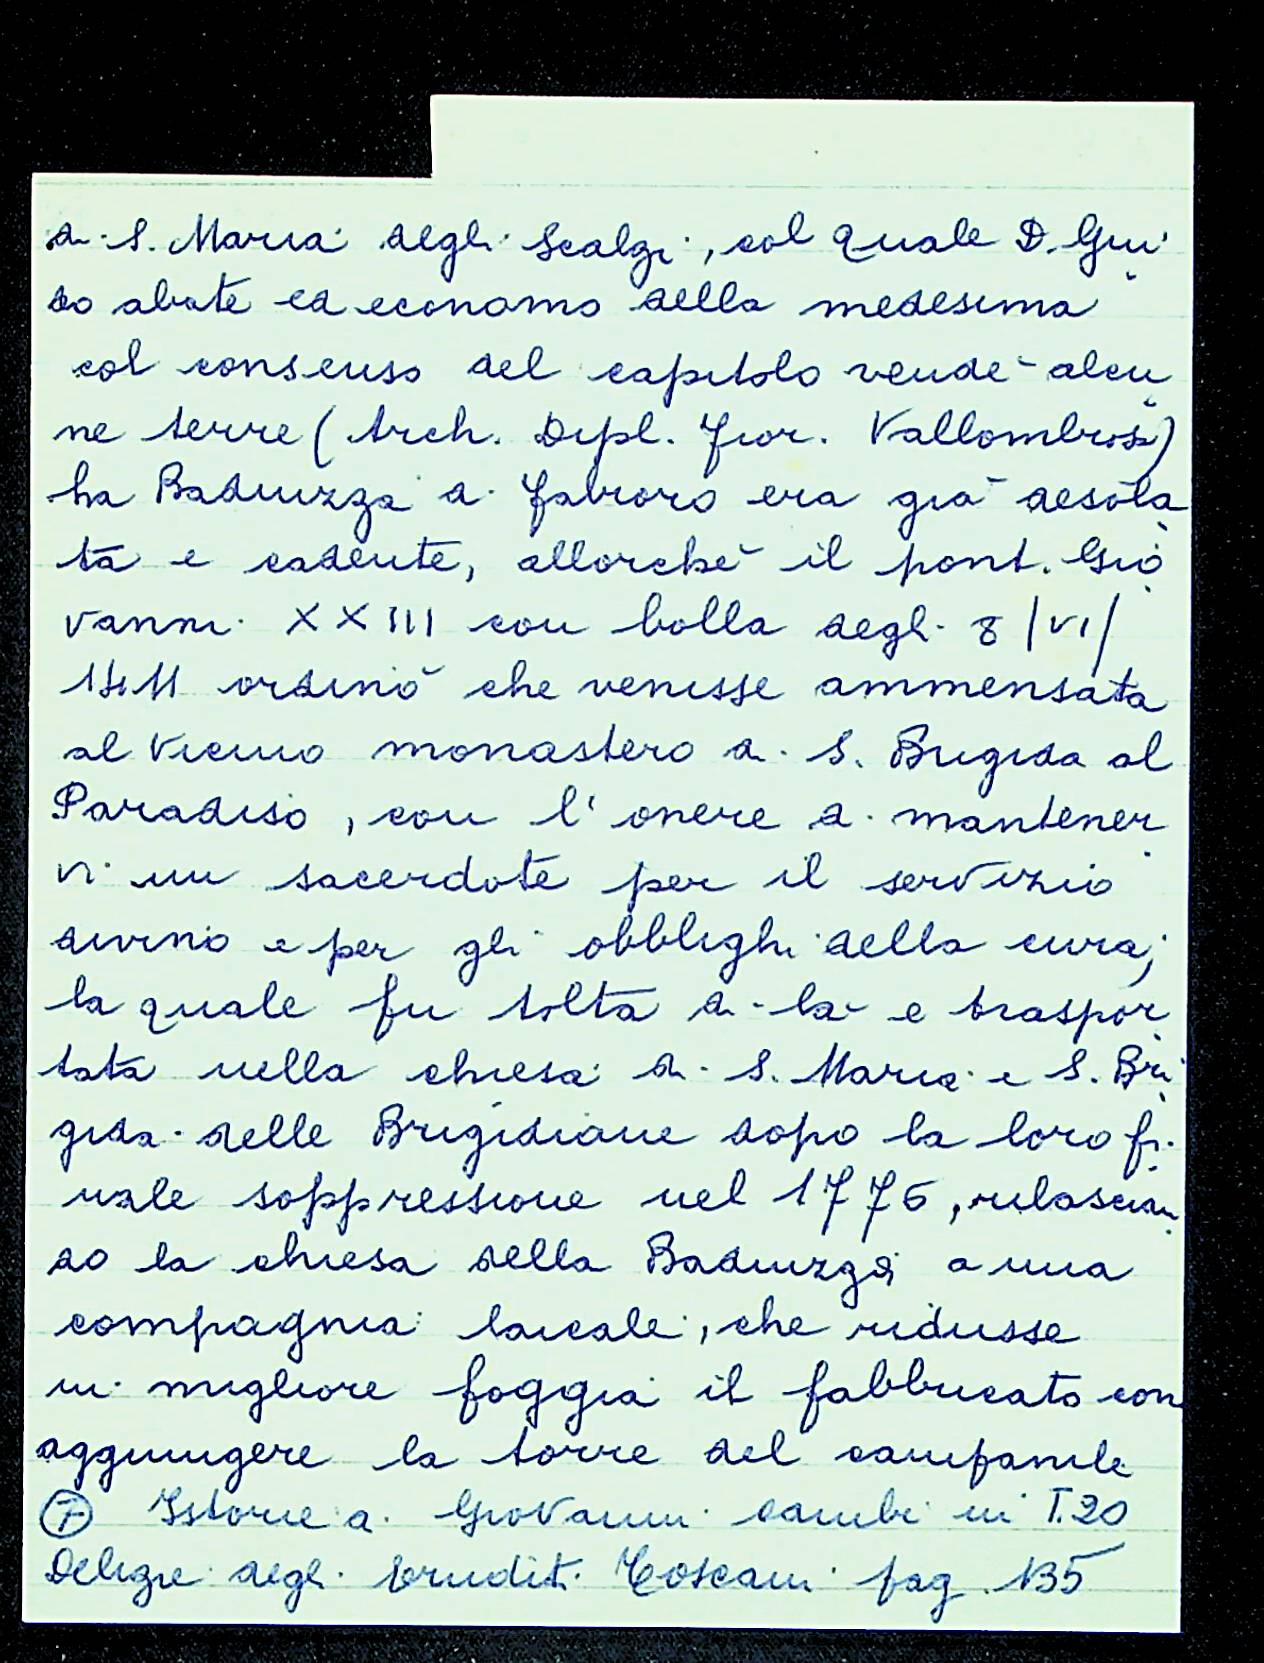 di S. Maria degli Scalzi, col quale D. Gui
do abate ed economo della medesima
col consenso del capitolo vendè alcu
ne terre (Arch. Dipl. Fior. Vallombrosa)
La Badiuzza di Fabroro era già desola
ta e cadente, allorchè il pont. Gio
vanni XXIII con bolla degli 8/VI/
1411 ordinò che venisse ammensata
al vicino monastero di S. Brigida al
Paradiso, con l'onere di mantener
vi un sacerdote per il servizio
divino e per gli obblighi della cura;
la quale fu tolta di là e traspor
tata nella chiesa di S. Maria e S. Bri
gida delle Brigidiane dopo la loro fi
nale soppressione nel 1776, rilascian
do la chiesa della Badiuzza a una
compagnia laicale, che ridusse
in migliore foggia il fabbricato con
aggiungere la torre del campanile
(7) Istorie di Giovanni Cambi in T.20
Delizie degli Erudit. Toscani pag. 135